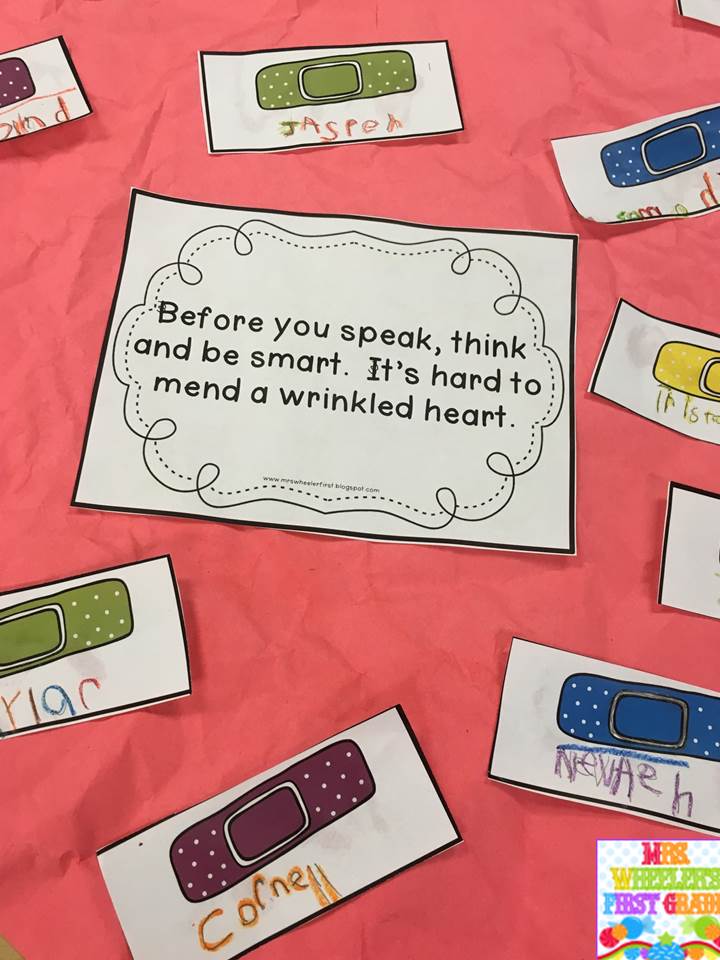 JAspeh
Before you speak, think
and be smart. It's hard to
mend a wrinkled heart.
www.mrswheelerfirst.blogspot.com
Cornell
NevAeh
MRS.
WHEELER'S
FIRST GRADE